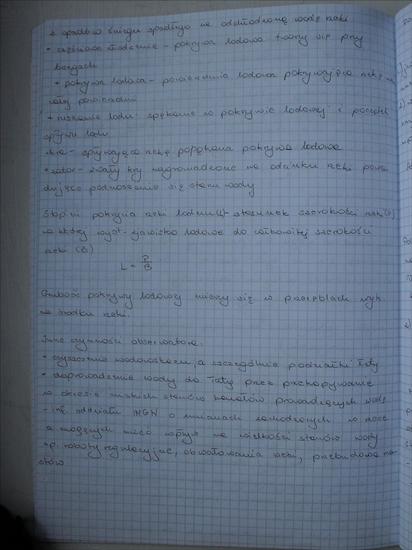 z opadów śniegu spadłego na ochłodzoną wodę rzeki
• częściowe zlodzenie - pokrywa lodowa tworzy się przy
brzegach
• pokrywa lodowa - powierzchnia lodowa pokrywająca rzekę na
całej powierzchni
• ruszenie lodu: spękanie w pokrywie lodowej i początek
spływu lodu
• kra - spływająca rzeką popękana pokrywa lodowa
• zator - zwały kry nagromadzone na odcinku rzeki powo-
dujące podnoszenie się stanu wody
Stopień pokrycia rzeki lodem (L) - stosunek szerokości rzeki
w której wyst. zjawisko lodowe do całkowitej szerokości
rzeki (B)
L = P/B
Grubość pokrywy lodowej mierzy się w przeręblach wyk
na środku rzeki.
Inne czynności obserwatora:
• czyszczenie wodowskazu, a szczególnie podziałki łaty
• doprowadzenie wody do łaty przez przekopywanie
w okresie niskich stanów kanałów prowadzących wodę
• inf. oddziału o zmianach
a mogących mieć wpływ na wielkości stanów wody
np. roboty regulacyjne, obwałowania rzeki, przebudowa mo
stów